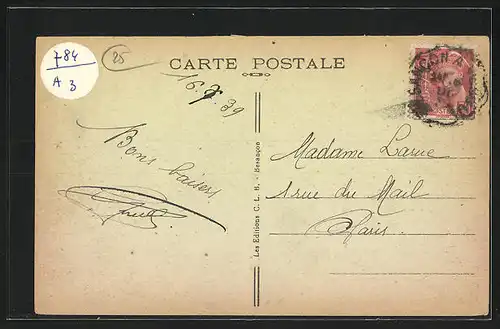 784
A 3
25
CARTE POSTALE
16.7.39
Bons baisers
Les Editions C. L. B. - Besançon
Madame Larue
1 rue du Mail
Paris